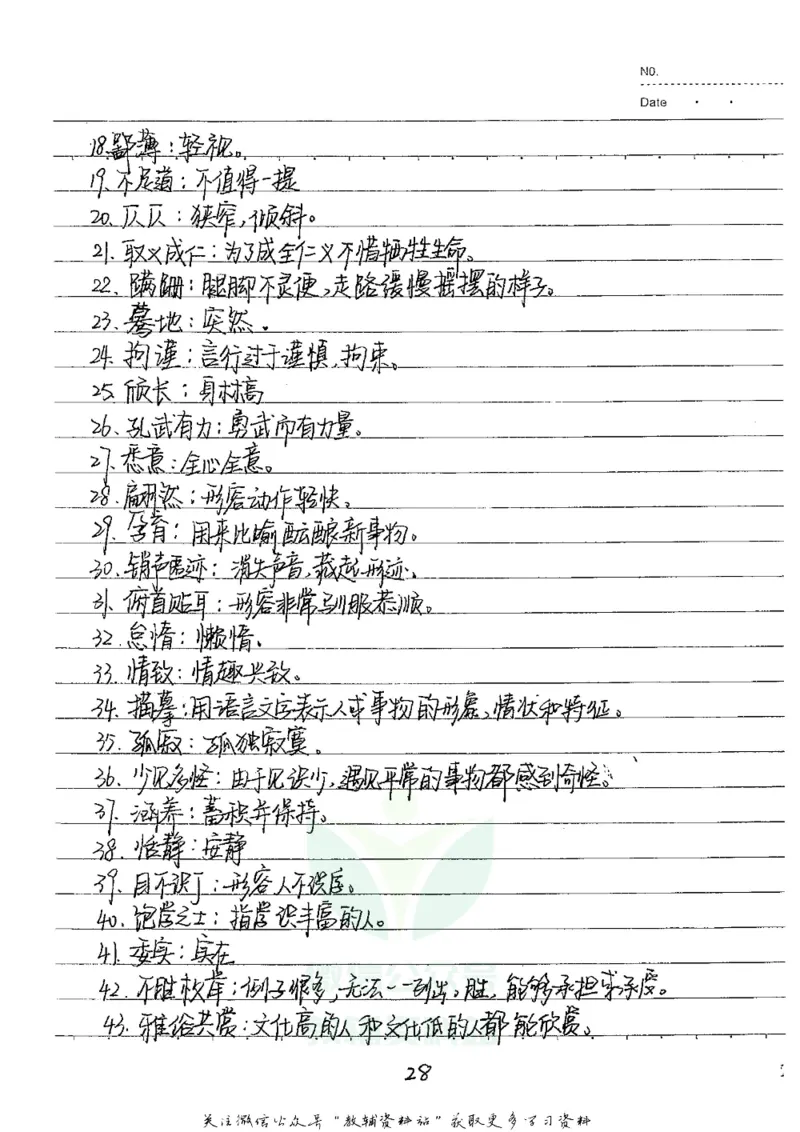 NO.
Date
18.鄙薄:轻视。
19.不足道:不值得一提
20.仄仄:狭窄,倾斜。
21.取义成仁:为了成全仁义不惜牺牲生命。
22.蹒跚:腿脚不灵便,走路缓慢摇摆的样子。
23.蓦地:突然。
24.拘谨:言行过于谨慎,拘束。
25.颀长:身材高
26.孔武有力:勇武而有力量。
27.悉意:全心全意。
28.翩然:形容动作轻快。
29.孕育:用来比喻酝酿新事物。
30.销声匿迹:消失声音,藏起形迹。
31.俯首贴耳:形容非常驯服恭顺。
32.怠惰:懒惰。
33.情致:情趣兴致。
34.描摹:用语言文字表示人或事物的形象、情状和特征。
35.孤寂:孤独寂寞。
36.少见多怪:由于见识少,遇见平常的事物都感到奇怪。
37.涵养:蓄积并保持。
38.恬静:安静
39.目不识丁:形容人不识字。
40.饱学之士:指学识丰富的人。
41.委实:实在
42.不胜枚举:例子很多,无法一一列出。胜,能够承担或承受。
43.雅俗共赏:文化高的人和文化低的人都能欣赏。
28
关注微信公众号“教辅资料站”获取更多学习资料